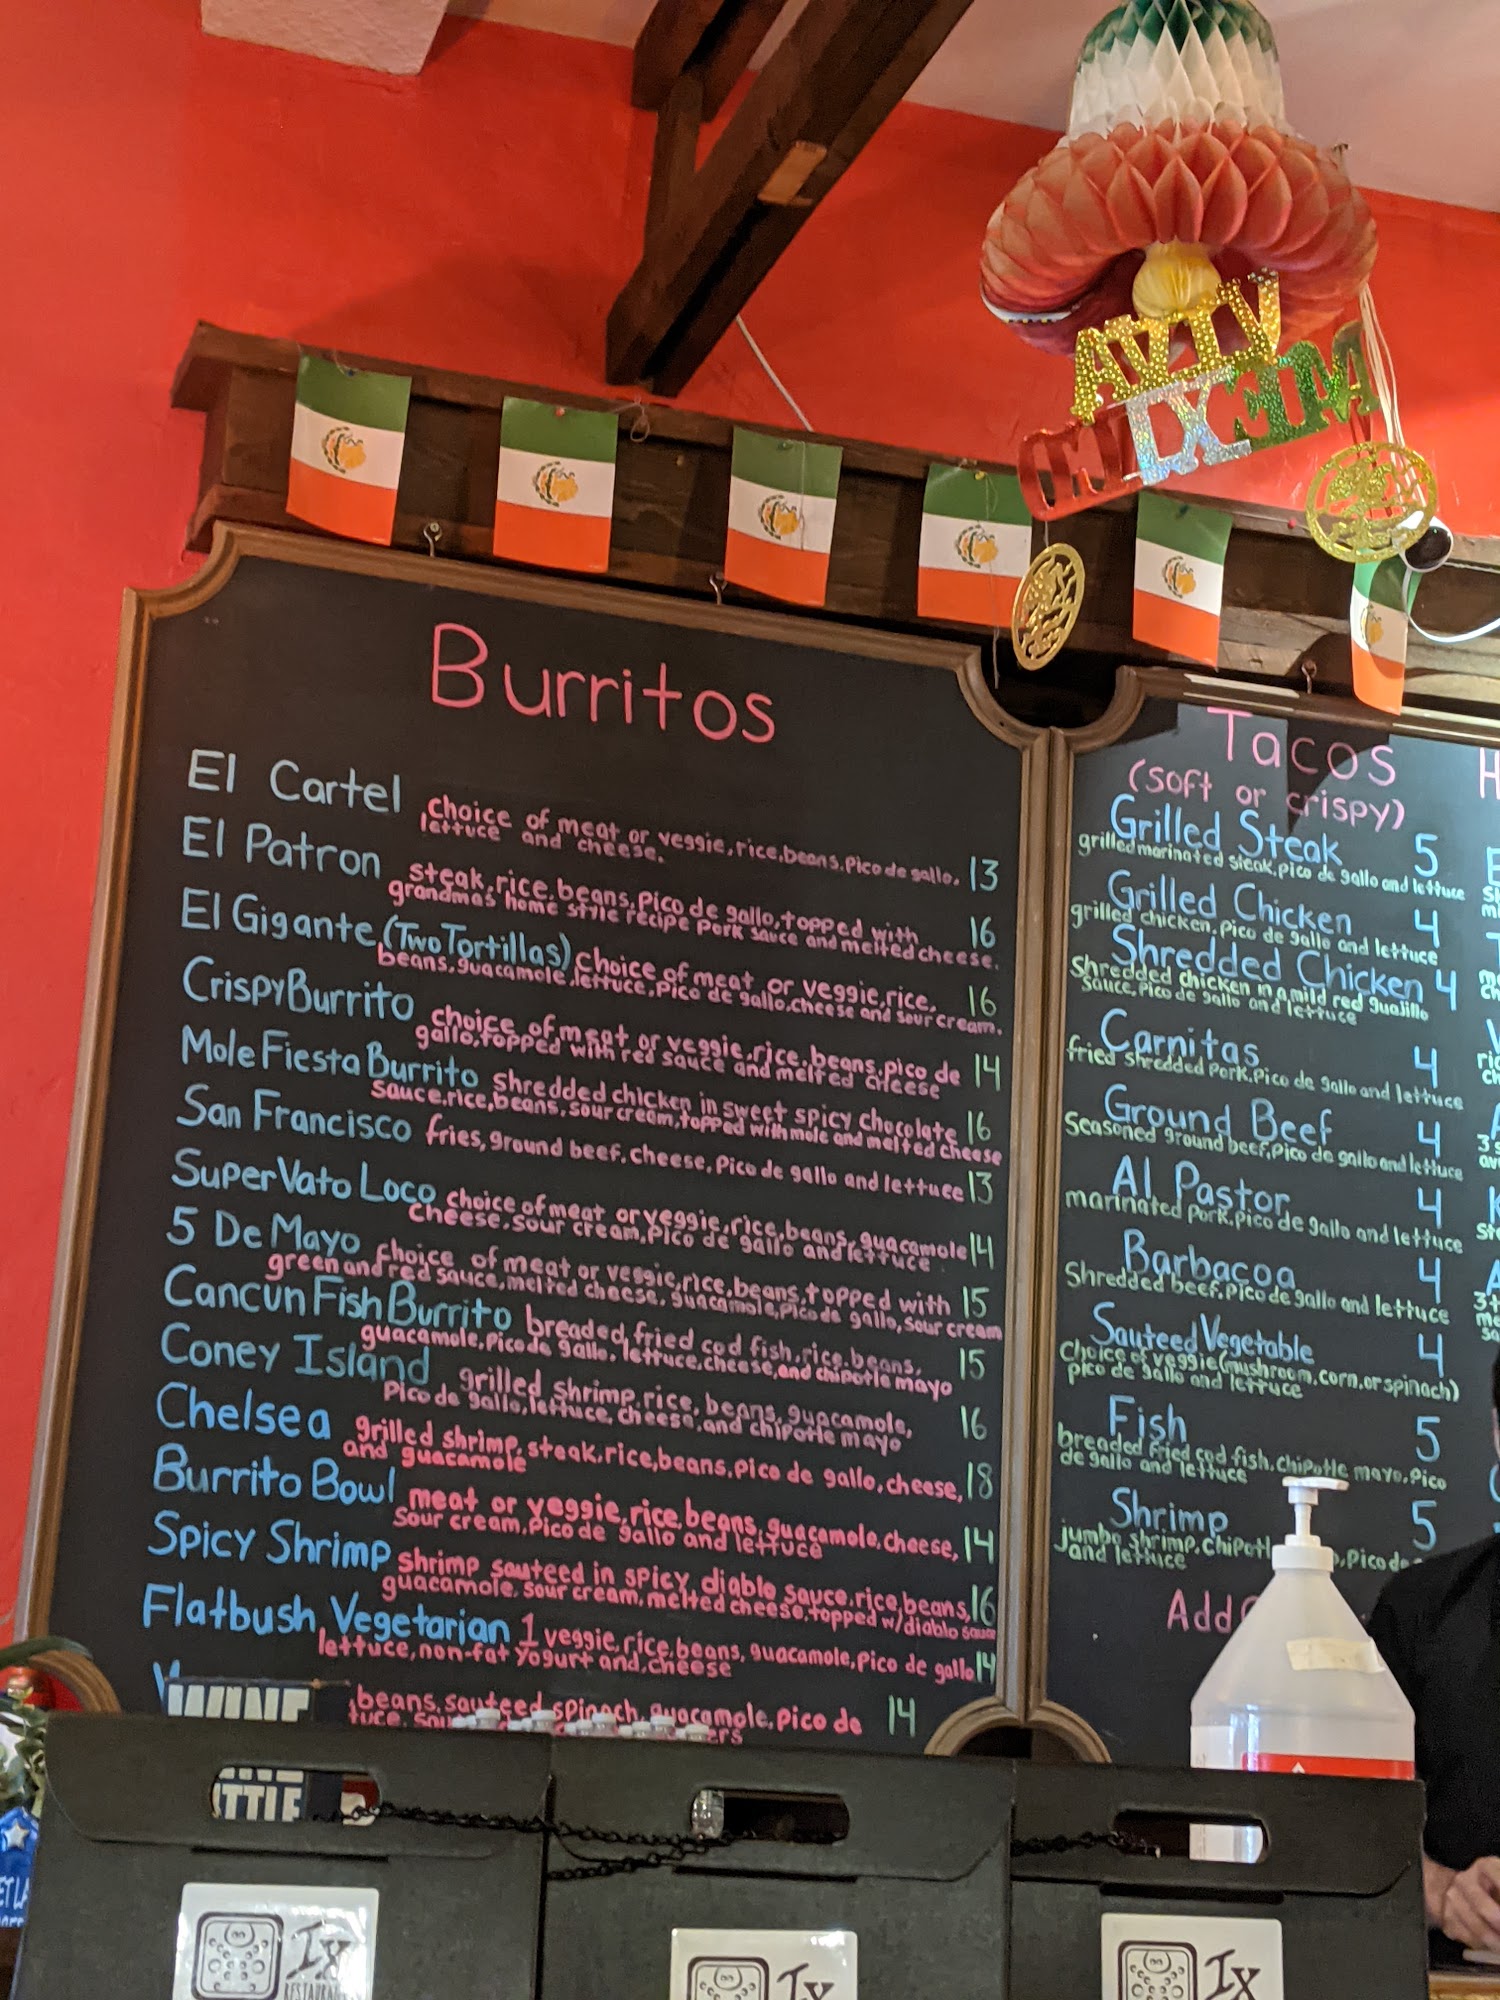 VIVA
MEXICO
Burritos
El Cartel choice of meat or veggie, rice, beans, Pico de gallo, 13
lettuce and cheese.
El Patron steak, rice, beans, Pico de gallo, topped with 16
grandmas home style recipe Pork sauce and melted cheese.
El Gigante (Two Tortillas) choice of meat or veggie, rice, 16
beans, guacamole, lettuce, Pico de gallo, cheese and sour cream.
Crispy Burrito choice of meat or veggie, rice, beans, pico de 14
gallo, topped with red sauce and melted cheese
Mole Fiesta Burrito shredded chicken in sweet spicy chocolate 16
sauce, rice, beans, sour cream, topped with mole and melted cheese
San Francisco fries, ground beef, cheese, Pico de gallo and lettuce 13
Super Vato Loco choice of meat or veggie, rice, beans, guacamole 14
cheese, sour cream, Pico de gallo and lettuce
5 De Mayo choice of meat or veggie, rice, beans, topped with 15
green and red sauce, melted cheese, guacamole, Pico de gallo, sour cream
Cancun Fish Burrito breaded, fried cod fish, rice, beans, 15
guacamole, Pico de gallo, lettuce, cheese, and chipotle mayo
Coney Island grilled shrimp, rice, beans, guacamole, 16
Pico de gallo, lettuce, cheese, and chipotle mayo
Chelsea grilled shrimp, steak, rice, beans, pico de gallo, cheese, 18
and guacamole
Burrito Bowl meat or veggie, rice, beans, guacamole, cheese, 14
sour cream, Pico de gallo and lettuce
Spicy Shrimp shrimp sauteed in spicy diablo sauce, rice, beans, 16
guacamole, sour cream, melted cheese, topped w/diablo sauce
Flatbush Vegetarian 1 veggie, rice, beans, guacamole, Pico de gallo 14
lettuce, non-fat yogurt and cheese
beans, sauteed spinach, guacamole, pico de 14
Tacos
(soft or crispy)
Grilled Steak 5
grilled marinated steak, pico de gallo and lettuce
Grilled Chicken 4
grilled chicken, pico de gallo and lettuce
Shredded Chicken 4
Shredded chicken in a mild red guajillo
sauce, Pico de gallo and lettuce
Carnitas 4
fried shredded Pork, Pico de gallo and lettuce
Ground Beef 4
Seasoned ground beef, Pico de gallo and lettuce
Al Pastor 4
marinated Pork, pico de gallo and lettuce
Barbacoa 4
Shredded beef, Pico de gallo and lettuce
Sauteed Vegetable 4
choice of veggie (mushroom, corn, or spinach)
pico de gallo and lettuce
Fish 5
breaded fried cod fish, chipotle mayo, Pico
de gallo and lettuce
Shrimp 5
jumbo shrimp, chipotle Pico de
and lettuce
Add
WINE
Ix
RESTAURANT
Ix
Ix